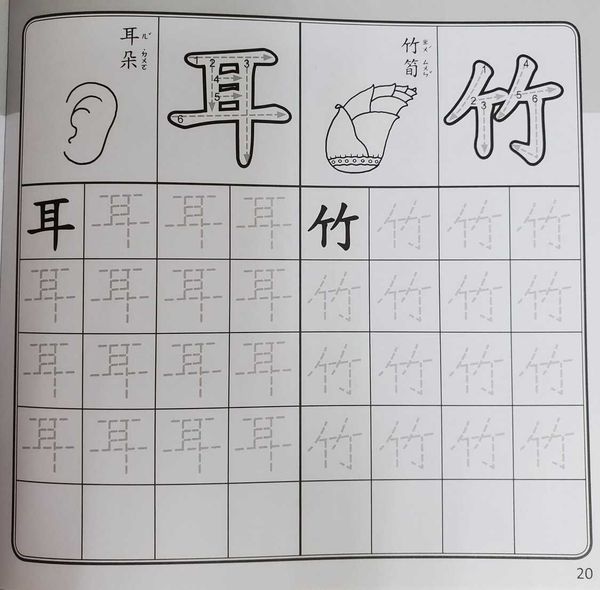 耳朵
ㄦˇ ㄉㄨㄛ
耳
1 2 3 4 5 6
竹筍
ㄓㄨˊ ㄙㄨㄣˇ
竹
1 2 3 4 5 6
耳 耳 耳 耳 竹 竹 竹 竹
耳 耳 耳 耳 竹 竹 竹 竹
耳 耳 耳 耳 竹 竹 竹 竹
耳 耳 耳 耳 竹 竹 竹 竹
20